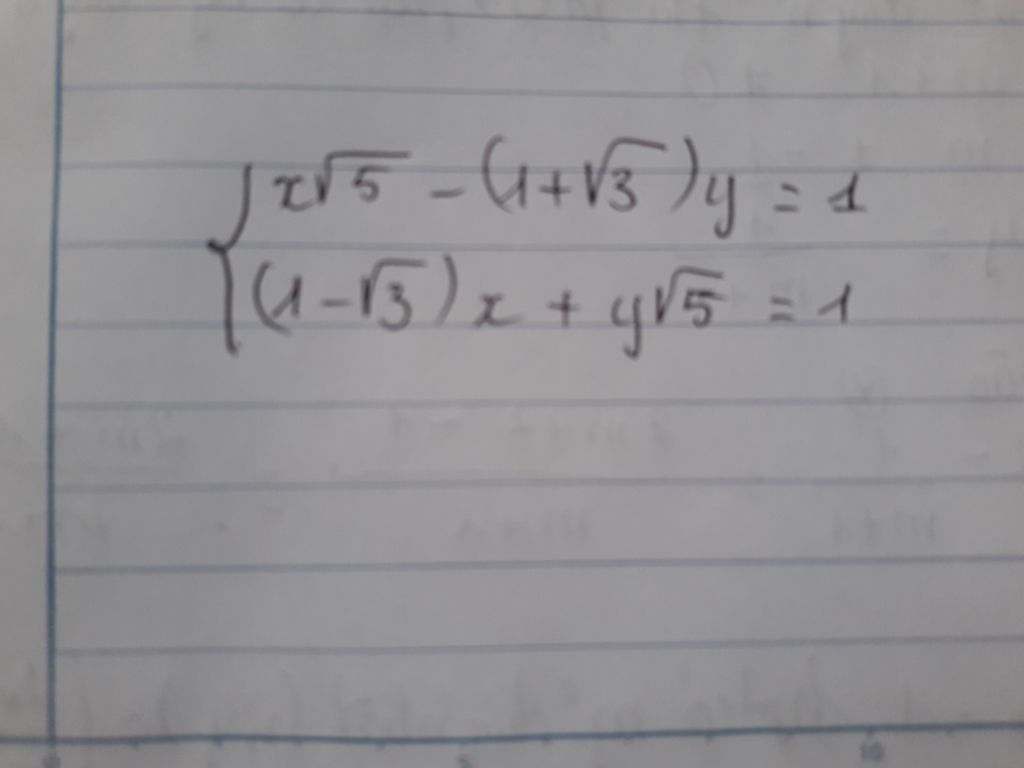 x√5 - (1+√3)y = 1
(1-√3)x + y√5 = 1